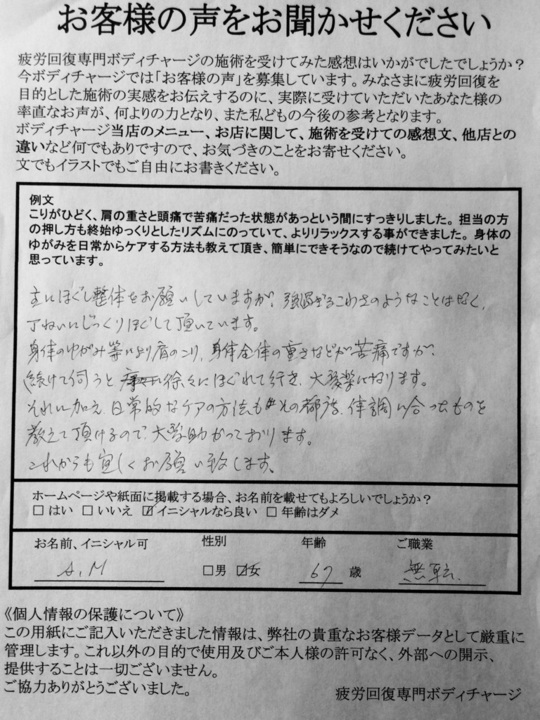 お客様の声をお聞かせください
疲労回復専門ボディチャージの施術を受けてみた感想はいかがでしたでしょうか?
今ボディチャージでは「お客様の声」を募集しています。みなさまに疲労回復を
目的とした施術の実感をお伝えするのに、実際に受けていただいたあなた様の
率直なお声が、何よりの力となり、また私どもの今後の参考となります。
ボディチャージ当店のメニュー、お店に関して、施術を受けての感想文、他店との
違いなど何でもありですので、お気づきのことをお寄せください。
文でもイラストでもご自由にお書きください。
例文
こりがひどく、肩の重さと頭痛で苦痛だった状態があっという間にすっきりしました。担当の方
の押し方も終始ゆっくりとしたリズムにのっていて、よりリラックスする事ができました。身体の
ゆがみを日常からケアする方法も教えて頂き、簡単にできそうなので続けてやってみたいと
思っています。
主にほぐし整体をお願いしていますが、強過ぎるこわさのようなことは無く、
丁ねいにじっくりほぐして頂いています。
身体のゆがみ等により肩のこり、身体全体の重さなどが苦痛ですが、
続けて伺うと徐々にほぐれて行き、大変楽になります。
それに加え日常的なケアの方法もその都度、体調に合ったものを
教えて頂けるので、大変助かっております。
これからも宜しくお願い致します。
ホームページや紙面に掲載する場合、お名前を載せてもよろしいでしょうか?
□はい □いいえ ☑イニシャルなら良い □年齢はダメ
お名前、イニシャル可 性別 年齢 ご職業
A.M □男 ☑女 67 歳
《個人情報の保護について》
この用紙にご記入いただきました情報は、弊社の貴重なお客様データとして厳重に
管理します。これ以外の目的で使用及びご本人様の許可なく、外部への開示、
提供することは一切ございません。
ご協力ありがとうございました。
疲労回復専門ボディチャージ